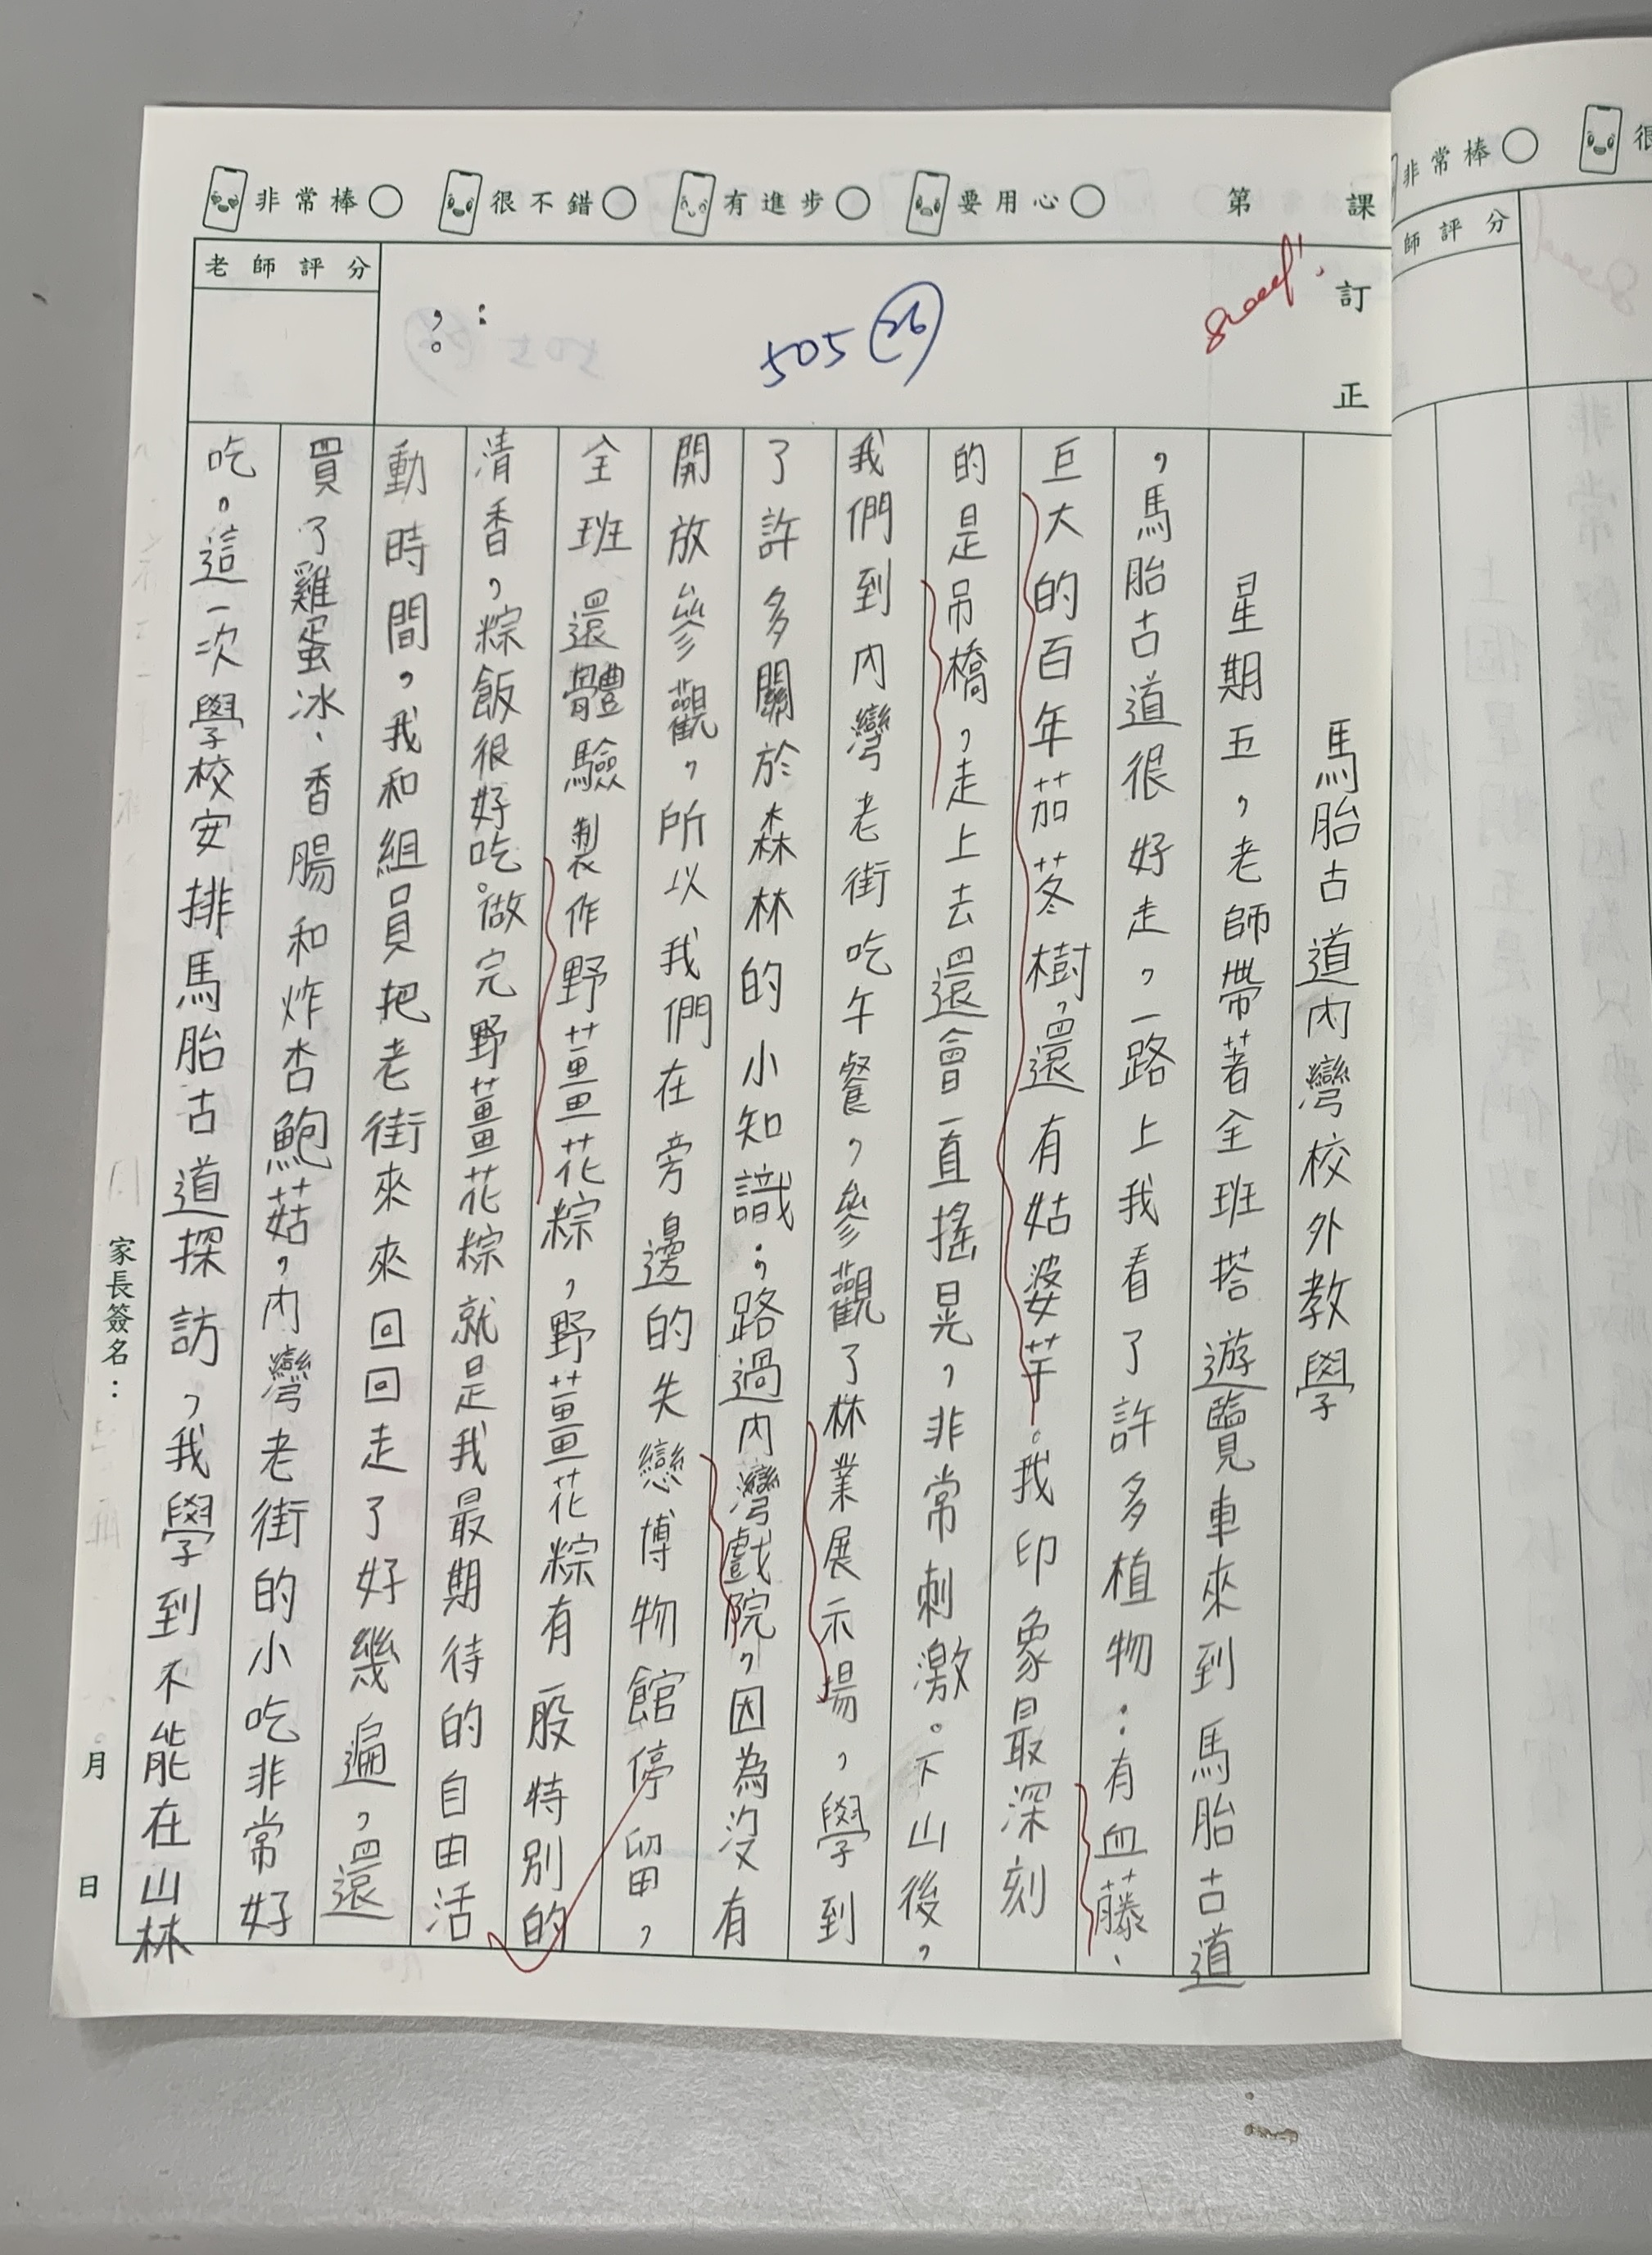 非常棒 很不錯 有進步 要用心 第 課
訂正
good!
505 26
：
，。
老師評分
馬胎古道內灣校外教學
星期五，老師帶著全班搭遊覽車來到馬胎古道
，馬胎古道很好走，一路上我看了許多植物：有血藤、
巨大的百年茄苳樹，還有姑婆芋。我印象最深刻
的是吊橋，走上去還會一直搖晃，非常刺激。下山後，
我們到內灣老街吃午餐，參觀了林業展示場，學到
了許多關於森林的小知識。，路過內灣戲院，因為沒有
開放參觀，所以我們在旁邊的失戀博物館停留，
全班還體驗製作野薑花粽，野薑花粽有一股特別的
清香，粽飯很好吃。做完野薑花粽就是我最期待的自由活
動時間，我和組員把老街來來回回走了好幾遍，還
買了雞蛋冰、香腸和炸杏鮑菇，內灣老街的小吃非常好
吃。這一次學校安排馬胎古道探訪，我學到不能在山林
家長簽名： 月 日
非常棒 很
師評分